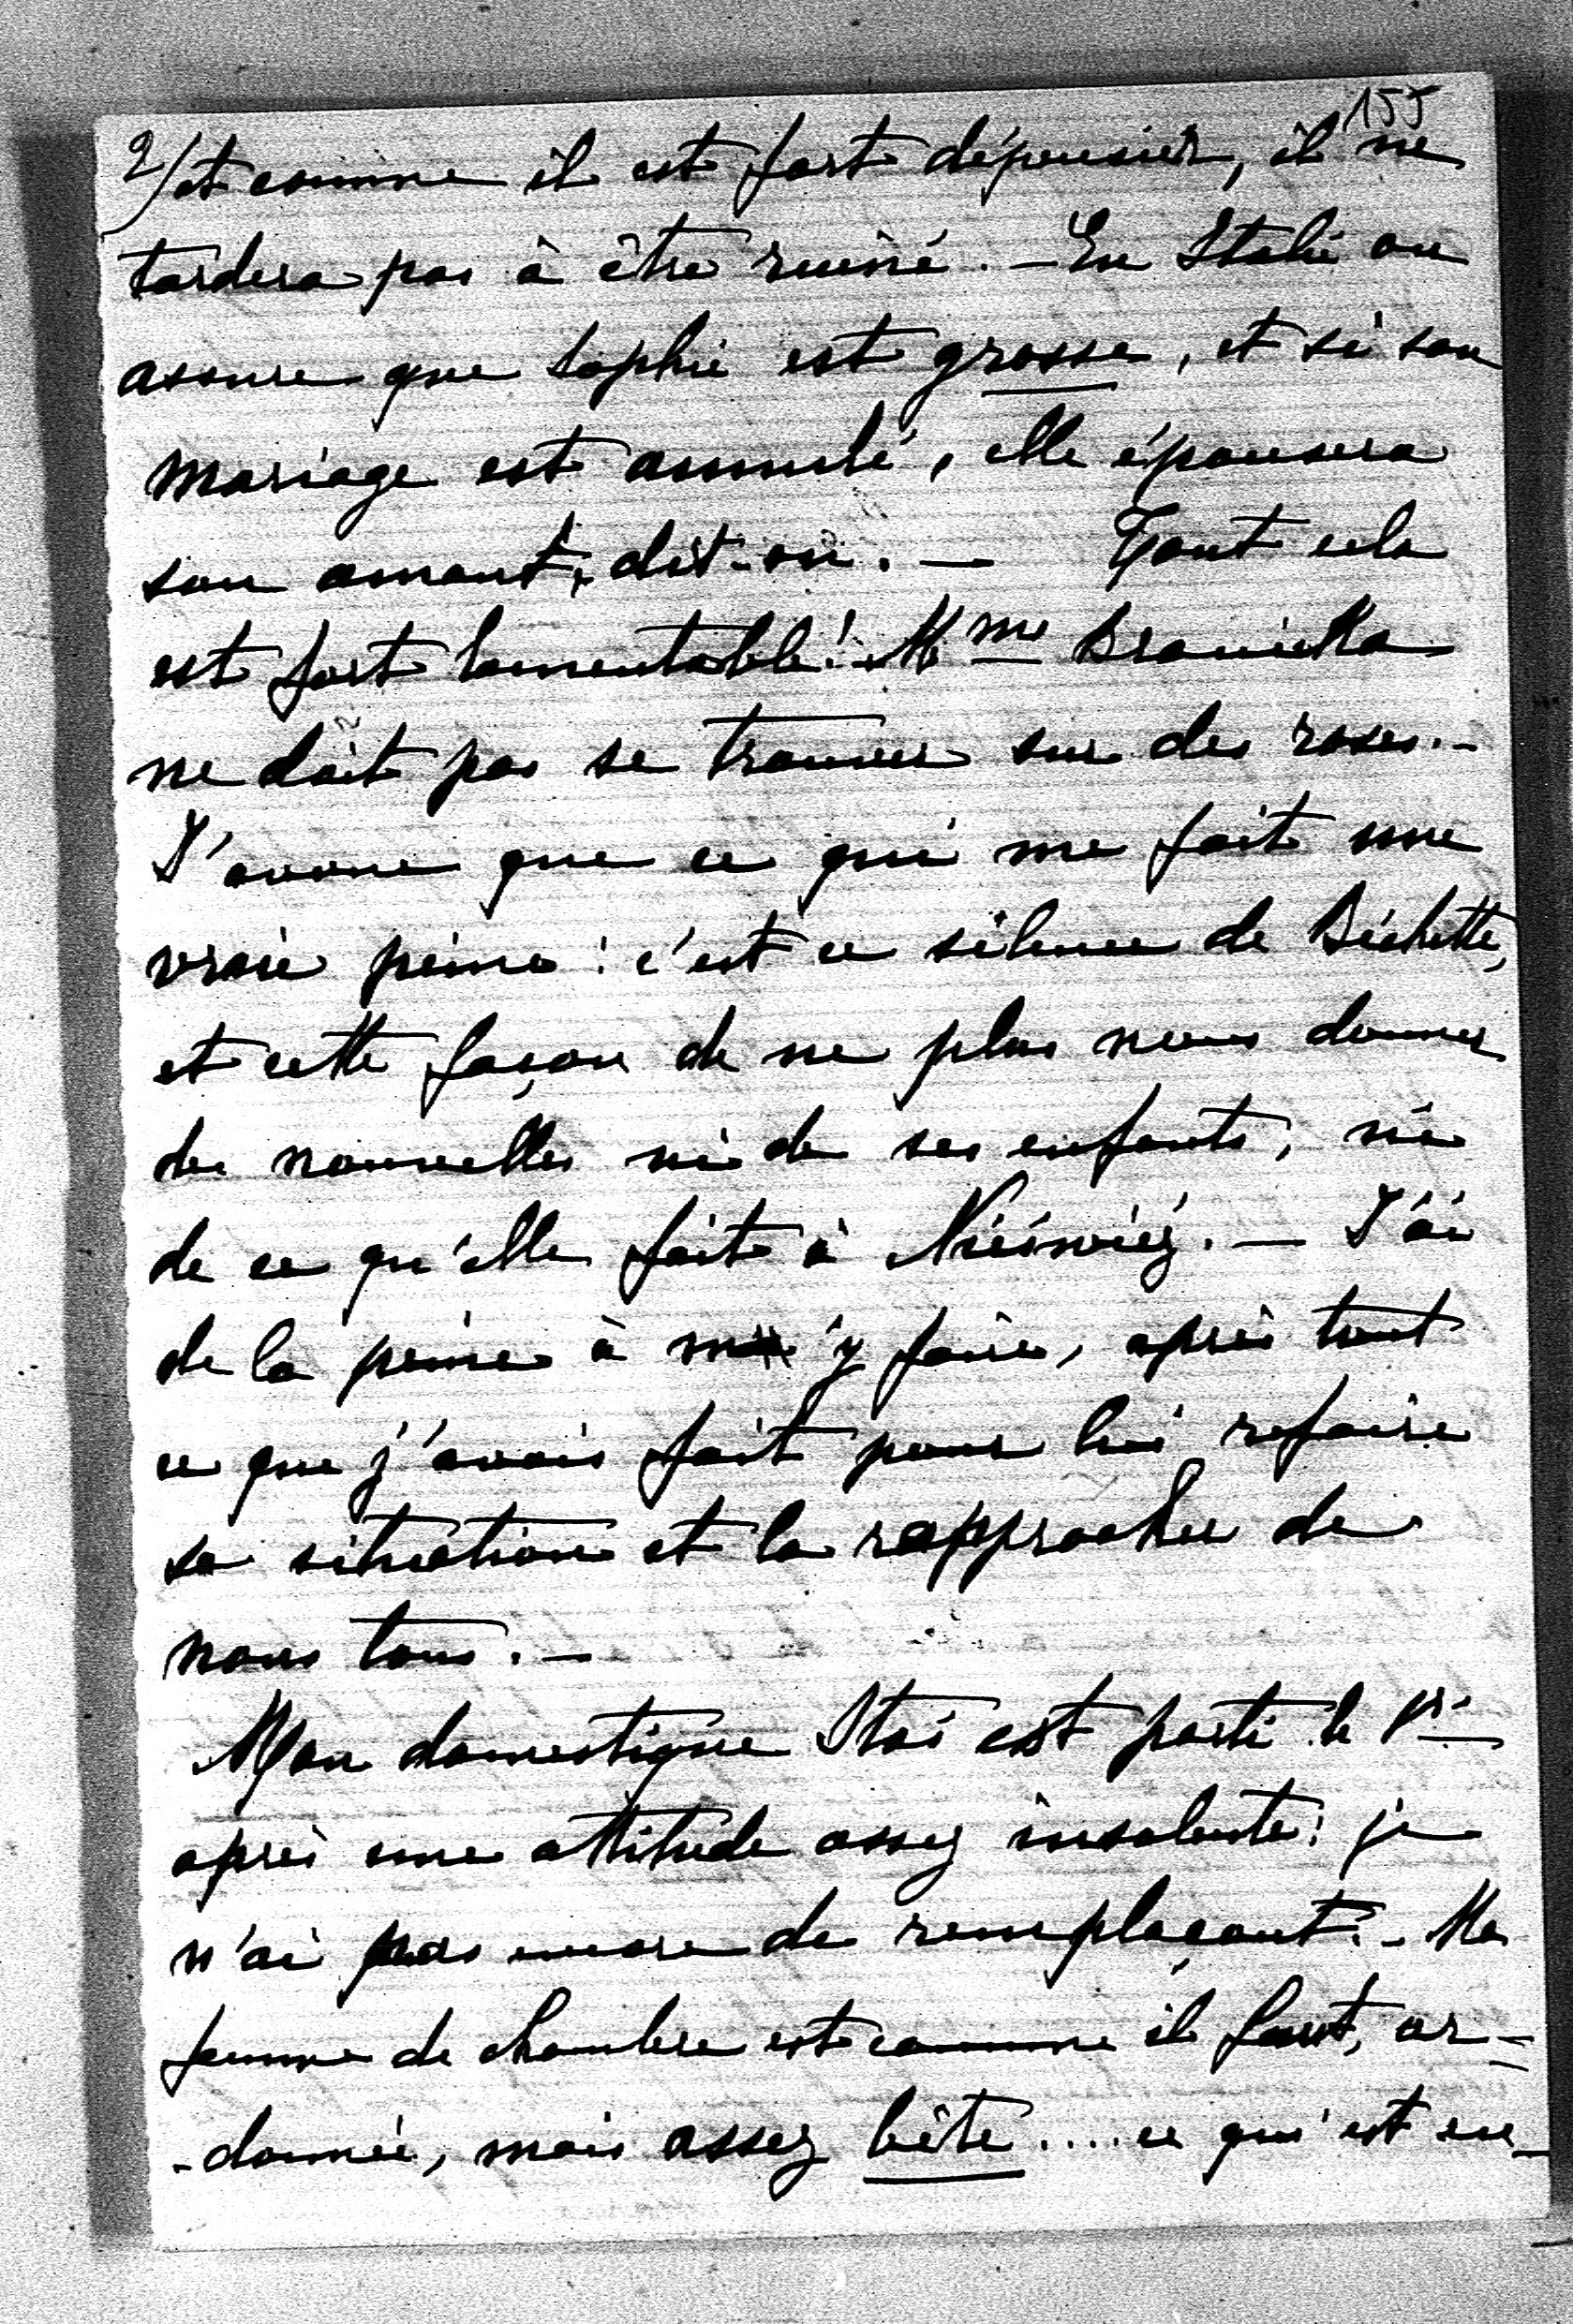 155
2/ et comme il est fort dépensier, il ne
tardera pas à être ruiné. — En Italie on
assure que Sophie est grosse, et si son
mariage est annulé, elle épousera
son amant, dit-on. — Tout cela
est fort lamentable! Mme Branicka
ne doit pas se trouver sur des roses. -
J'avoue que ce qui me fait une
vraie peine: c'est ce silence de Bichette,
et cette façon de ne plus nous donner
des nouvelles ni de ses enfants, ni
de ce qu'elle fait à Nieśwież. — J'ai
de la peine à m'y faire, après tout
ce que j'avais fait pour lui refaire
sa situation et la rapprocher de
nous tous. —
Mon domestique Staś est parti le 1er
après une attitude assez insolente; je
n'ai pas encore de remplaçant. - Ma
femme de chambre est comme il faut, or-
-donnée, mais assez bête .... ce qui est en-